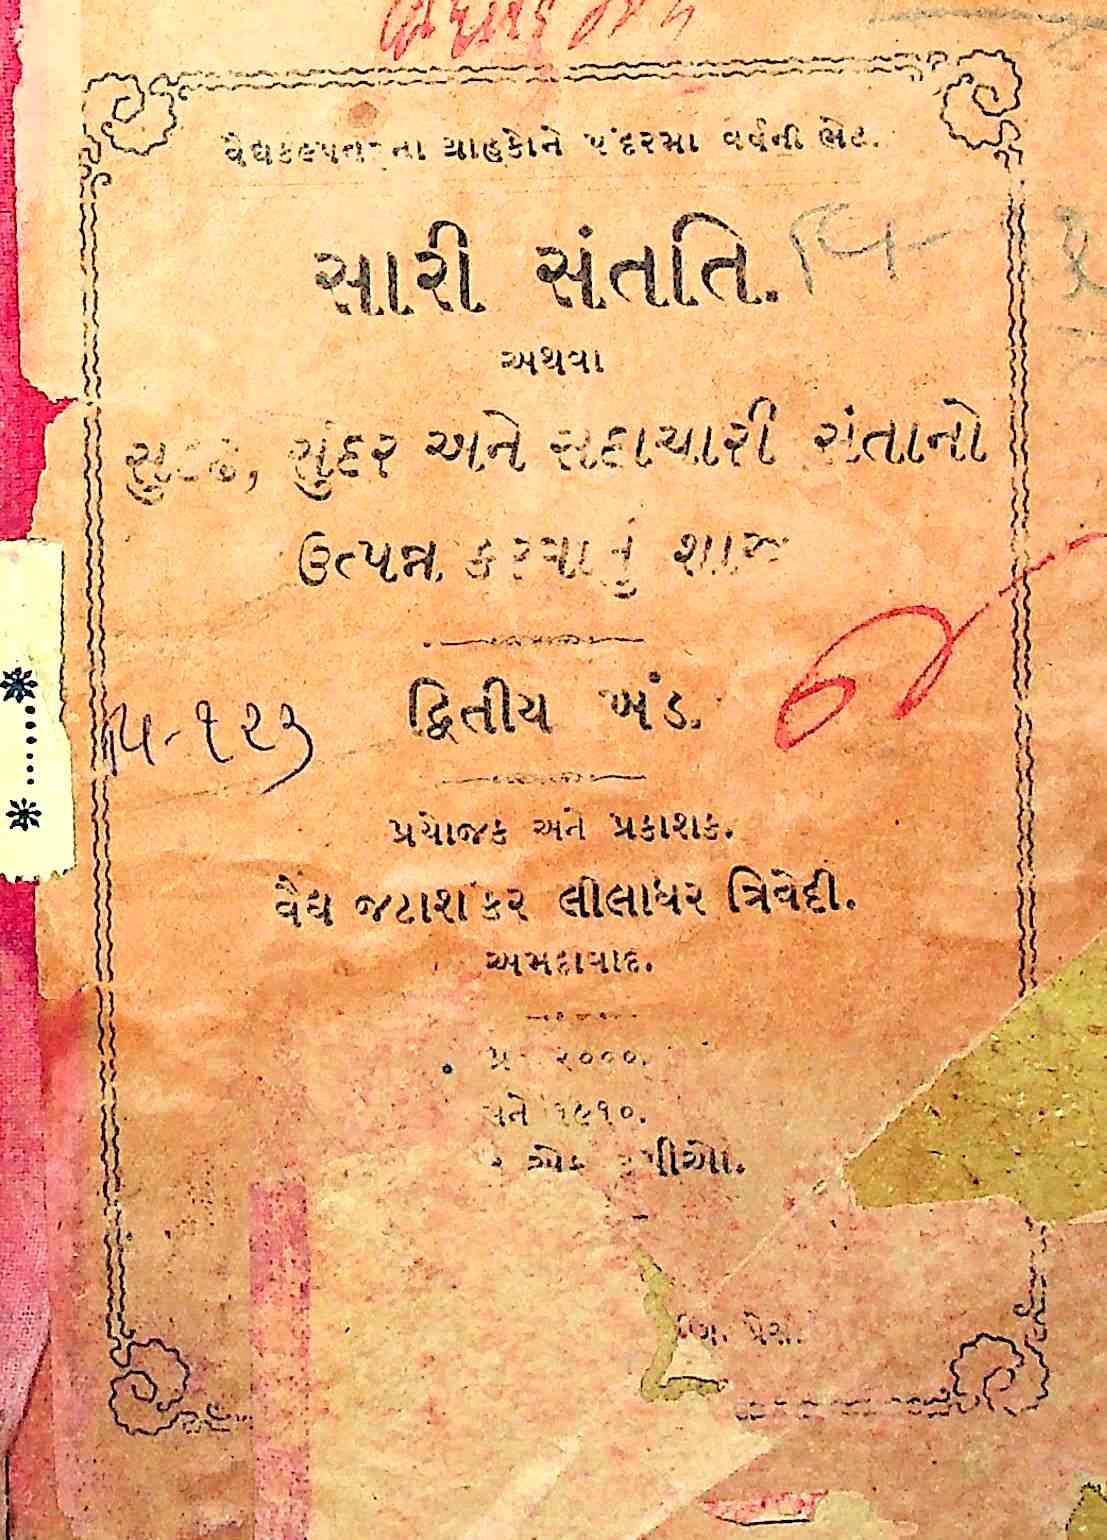 વૈદ્યકલ્પતરૂના ગ્રાહકોને પંદરમા વર્ષની ભેટ.
સારી સંતતિ.
અથવા
સુદૃઢ, સુંદર અને સદાચારી સંતાનો
ઉત્પન્ન કરવાનું શાસ્ત્ર
દ્વિતીય ખંડ.
વિ-૧૨૩
પ્રયોજક અને પ્રકાશક.
વૈદ્ય જટાશંકર લીલાધર ત્રિવેદી.
અમદાવાદ.
પ્રત ૨૦૦૦.
સને ૧૯૧૦.
એક રૂપીઓ.
પ્રેસ.